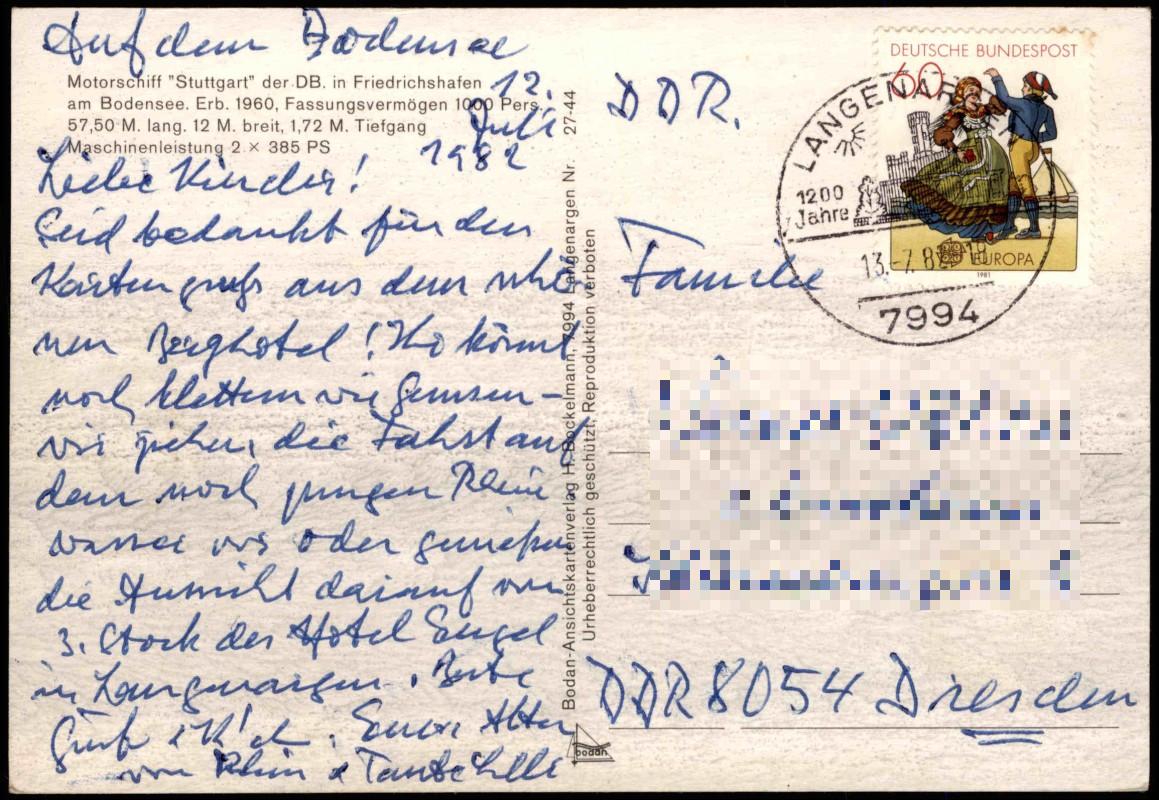 Auf dem Bodensee
Motorschiff "Stuttgart" der DB. in Friedrichshafen
am Bodensee. Erb. 1960, Fassungsvermögen 1000 Pers.
57,50 M. lang. 12 M. breit, 1,72 M. Tiefgang
Maschinenleistung 2 × 385 PS
12.
Juli
1982
Liebe Kinder!
Seid bedankt für den
Kartengruß aus dem schö-
nen Berghotel! Ihr könnt
noch klettern wie Gemsen –
wir ziehen die Fahrt auf
dem noch jungen Rhein
wasser vor oder genießen
die Aussicht darauf vom
3. Stock des Hotel Engel
in Langenargen. Beste
Grüße Eure Alten
vom Rhein &
Bodan-Ansichtskartenverlag H. Bockelmann, 7994 Langenargen Nr. 27-44
Urheberrechtlich geschützt, Reproduktion verboten
bodan
DEUTSCHE BUNDESPOST
60
EUROPA
1981
LANGENARGEN
1200
Jahre
13.-7.82-18
7994
DDR.
Familie
DDR 8054 Dresden